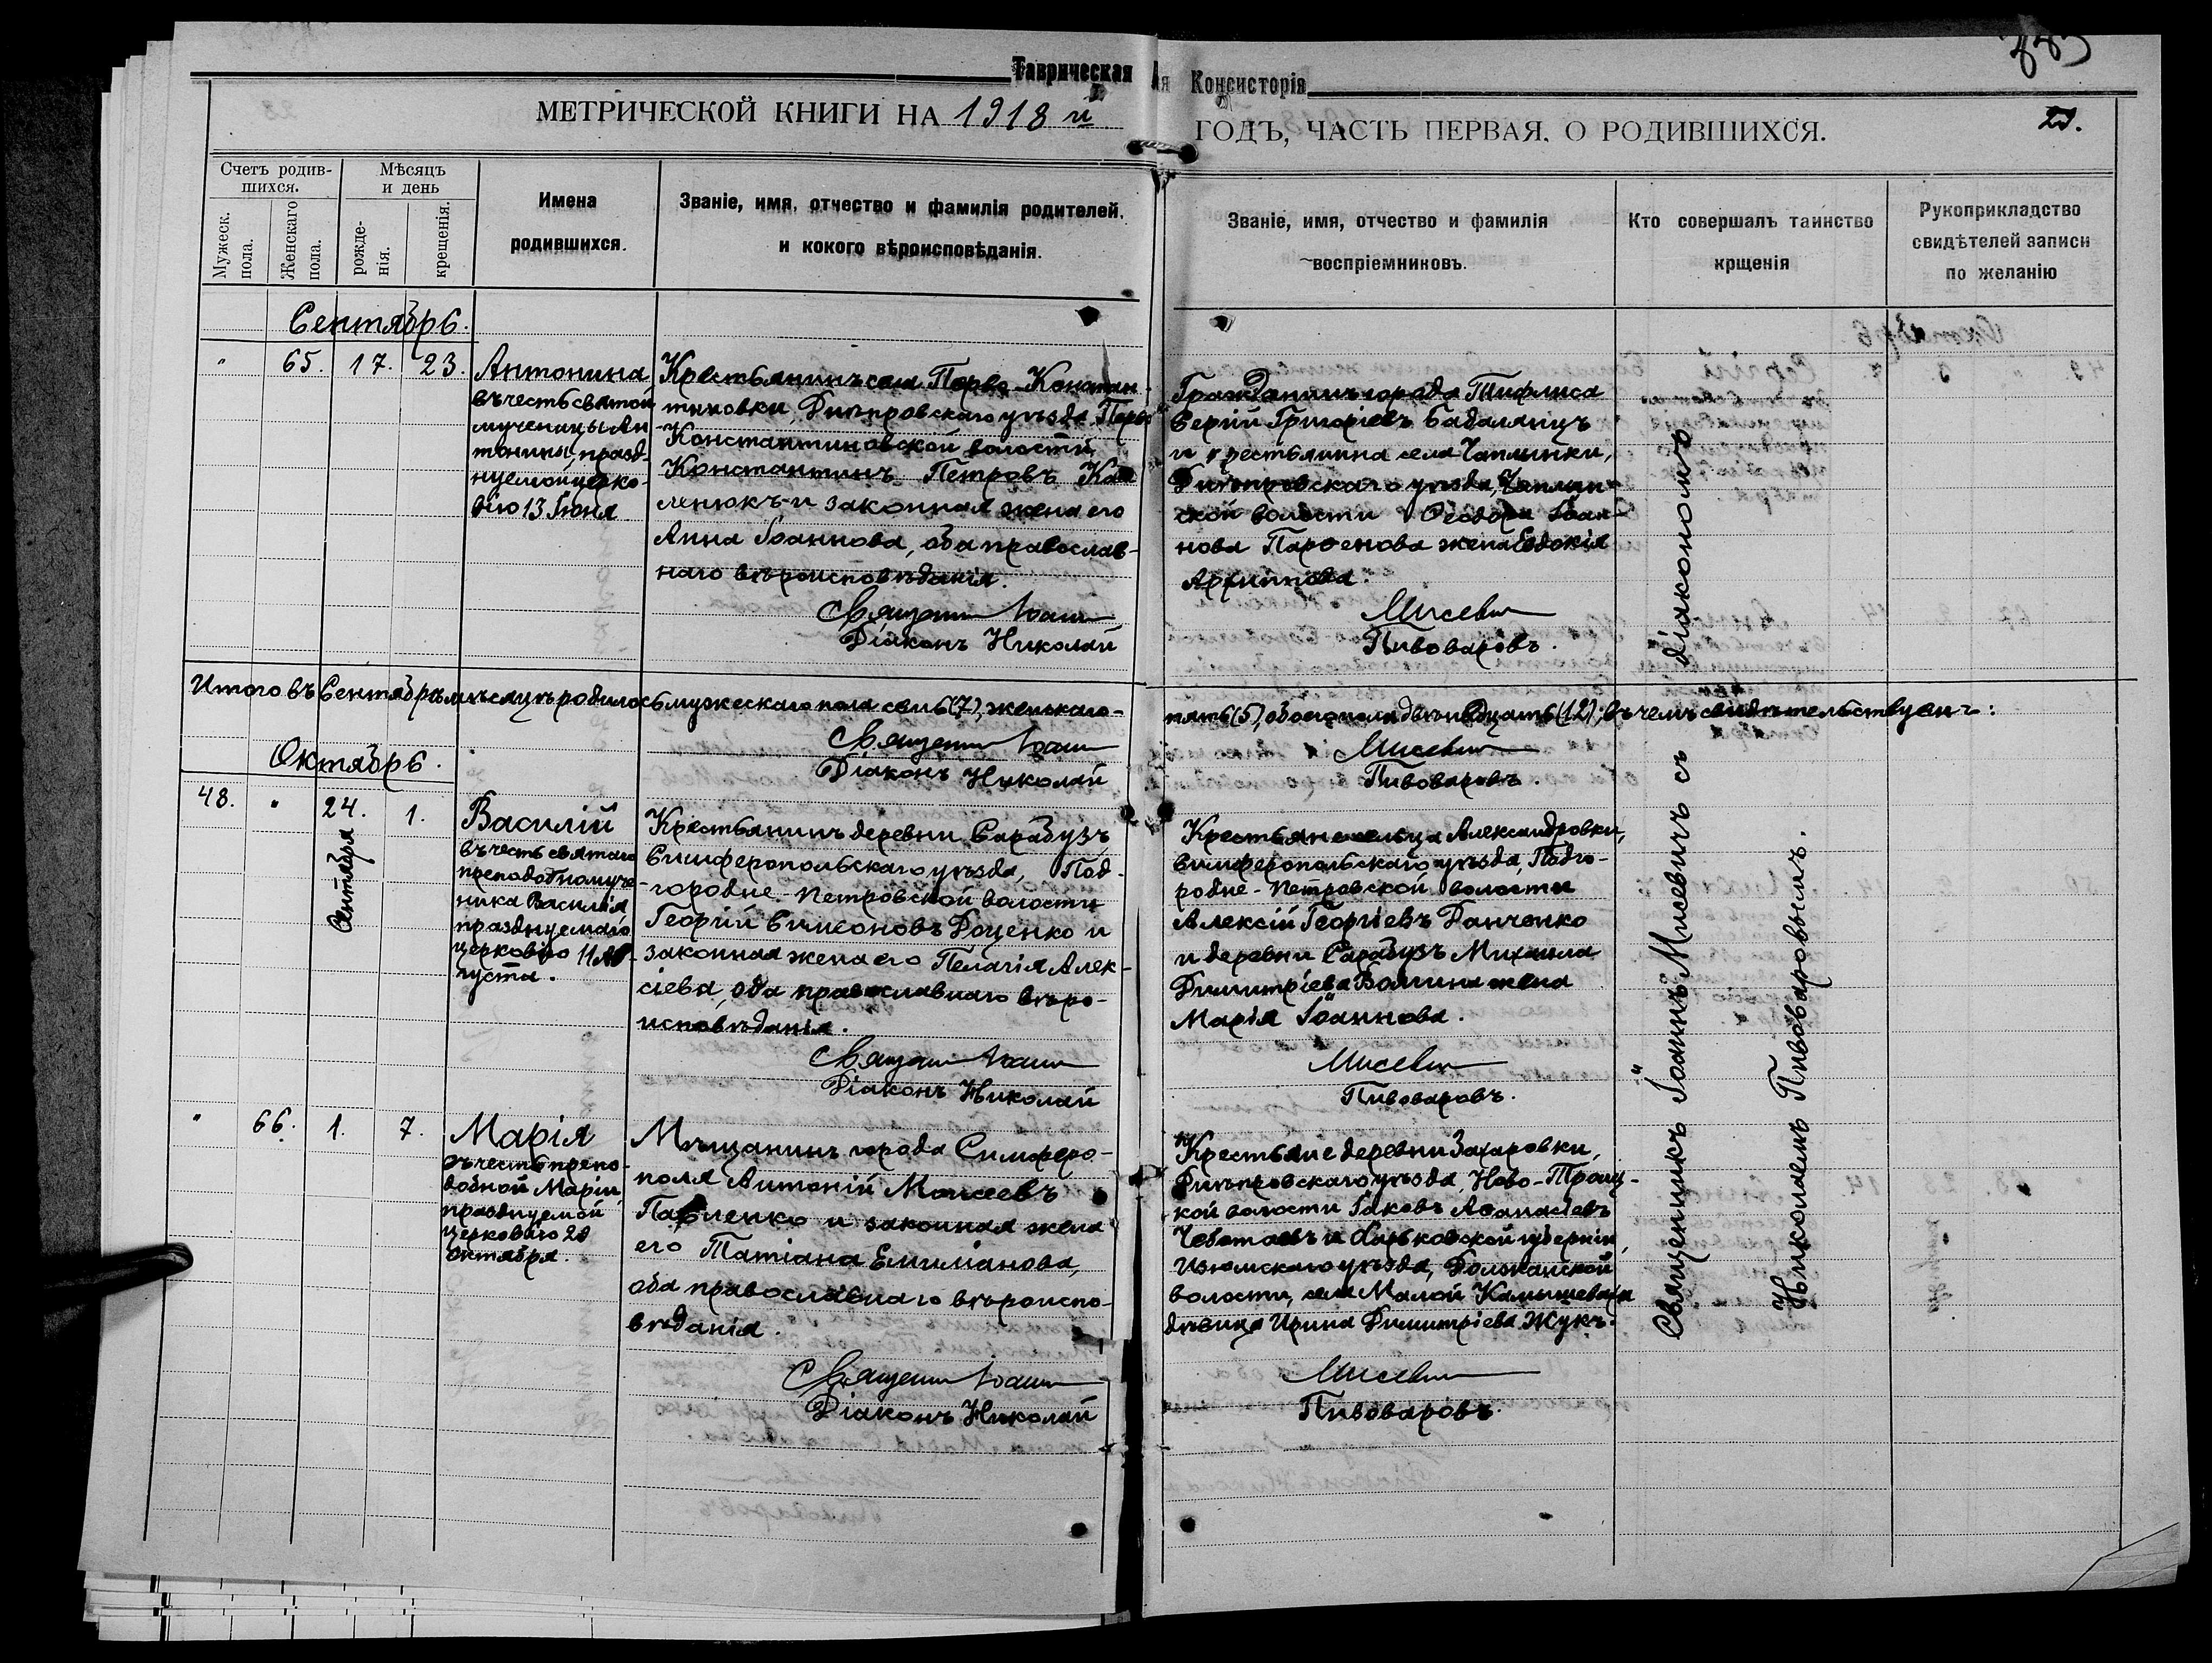 Таврическая
Консисторія
МЕТРИЧЕСКОЙ КНИГИ НА 1918 й
ГОДЪ, ЧАСТЬ ПЕРВАЯ, О РОДИВШИХСЯ.
Счетъ родив-
шихся.
Мужеск.
пола.
Женскаго
пола.
Мѣсяцъ
и день
рожде-
нія.
крещенія.
Имена
родившихся.
Званіе, имя, отчество и фамилія родителей,
и кокого вѣроисповѣданія.
Званіе, имя, отчество и фамилія
воспріемниновъ.
Кто совершалъ таинство
крщенія
Рукоприкладство
свидѣтелей записи
по желанію
Сентябрь.
" 65. 17. 23.
Антонина
въ честь святой
мученицы Ан
тонины, празд-
нуемой церко-
вію 13 Іюня
Крестьянинъ села Перво-Констан-
тиновки, Днѣпровскаго уѣзда, Перво
Константиновской волости
Константинъ Петровъ
ленюкъ и законная жена его
Анна Іоаннова, оба православ-
наго вѣроисповѣданія.
Священникъ Іоаннъ
Діаконъ Николай
Гражданинъ города Тифлиса
Сергій Григоріевъ Бадалянцъ
и крестьянина села Чаплинки,
Днѣпровскаго уѣзда, Чаплин-
ской волости Ѳеодора Іоан-
нова Парѳенова жена Евдокія
Архиппова.
Мисевич
Пивоваровъ.
Итого въ Сентябрѣ мѣсяцѣ родилось мужескаго пола семь (7), женскаго-
пять (5), обоего пола двѣнадцать (12); въ чемъ свидѣтельствуемъ:
Священникъ Іоаннъ
Діаконъ Николай
Мисевич
Пивоваровъ.
Октябрь.
48. " 24. 1.
Сентября
Василій
въ честь святаго
преподобномуче
ника Василія
празднуемаго
церковію 11 Ав-
густа.
Крестьянинъ деревни Сарабузъ
Симферопольскаго уѣзда, Под-
городне-Петровской волости
Георгій Симеоновъ Доценко и
законная жена его Пелагія Алек-
сіева, оба православнаго вѣро-
исповѣданія.
Священникъ Іоаннъ
Діаконъ Николай
Крестьяне сельца Александровки,
Симферопольскаго уѣзда, Подго-
родне-Петровской волости
Алексій Георгіевъ Данченко
и деревни Сарабузъ Михаила
Димитріева Волина жена
Марія Іоаннова.
Мисевич
Пивоваровъ.
" 66. 1. 7.
Марія
въ честь препо-
добной Маріи
празднуемой
церковію 29
октября.
Мѣщанинъ города Симферо-
поля Антоній Моисеевъ
Павленко и законная жена
его Татіана Емиліанова,
оба православнаго вѣроиспо-
вѣданія.
Священникъ Іоаннъ
Діаконъ Николай
Крестьяне деревни Захаровки,
Днѣпровскаго уѣзда, Ново-Троиц-
кой волости Іаковъ Аѳанасіевъ
и Харьковской губерніи,
Изюмскаго уѣзда, Должанской
волости, села Малой Камышевахи
дѣвица Ирина Димитріева Жукъ.
Мисевич
Пивоваровъ.
Священникъ Іоаннъ Мисевичъ съ діакономъ
Николаемъ Пивоваровымъ.